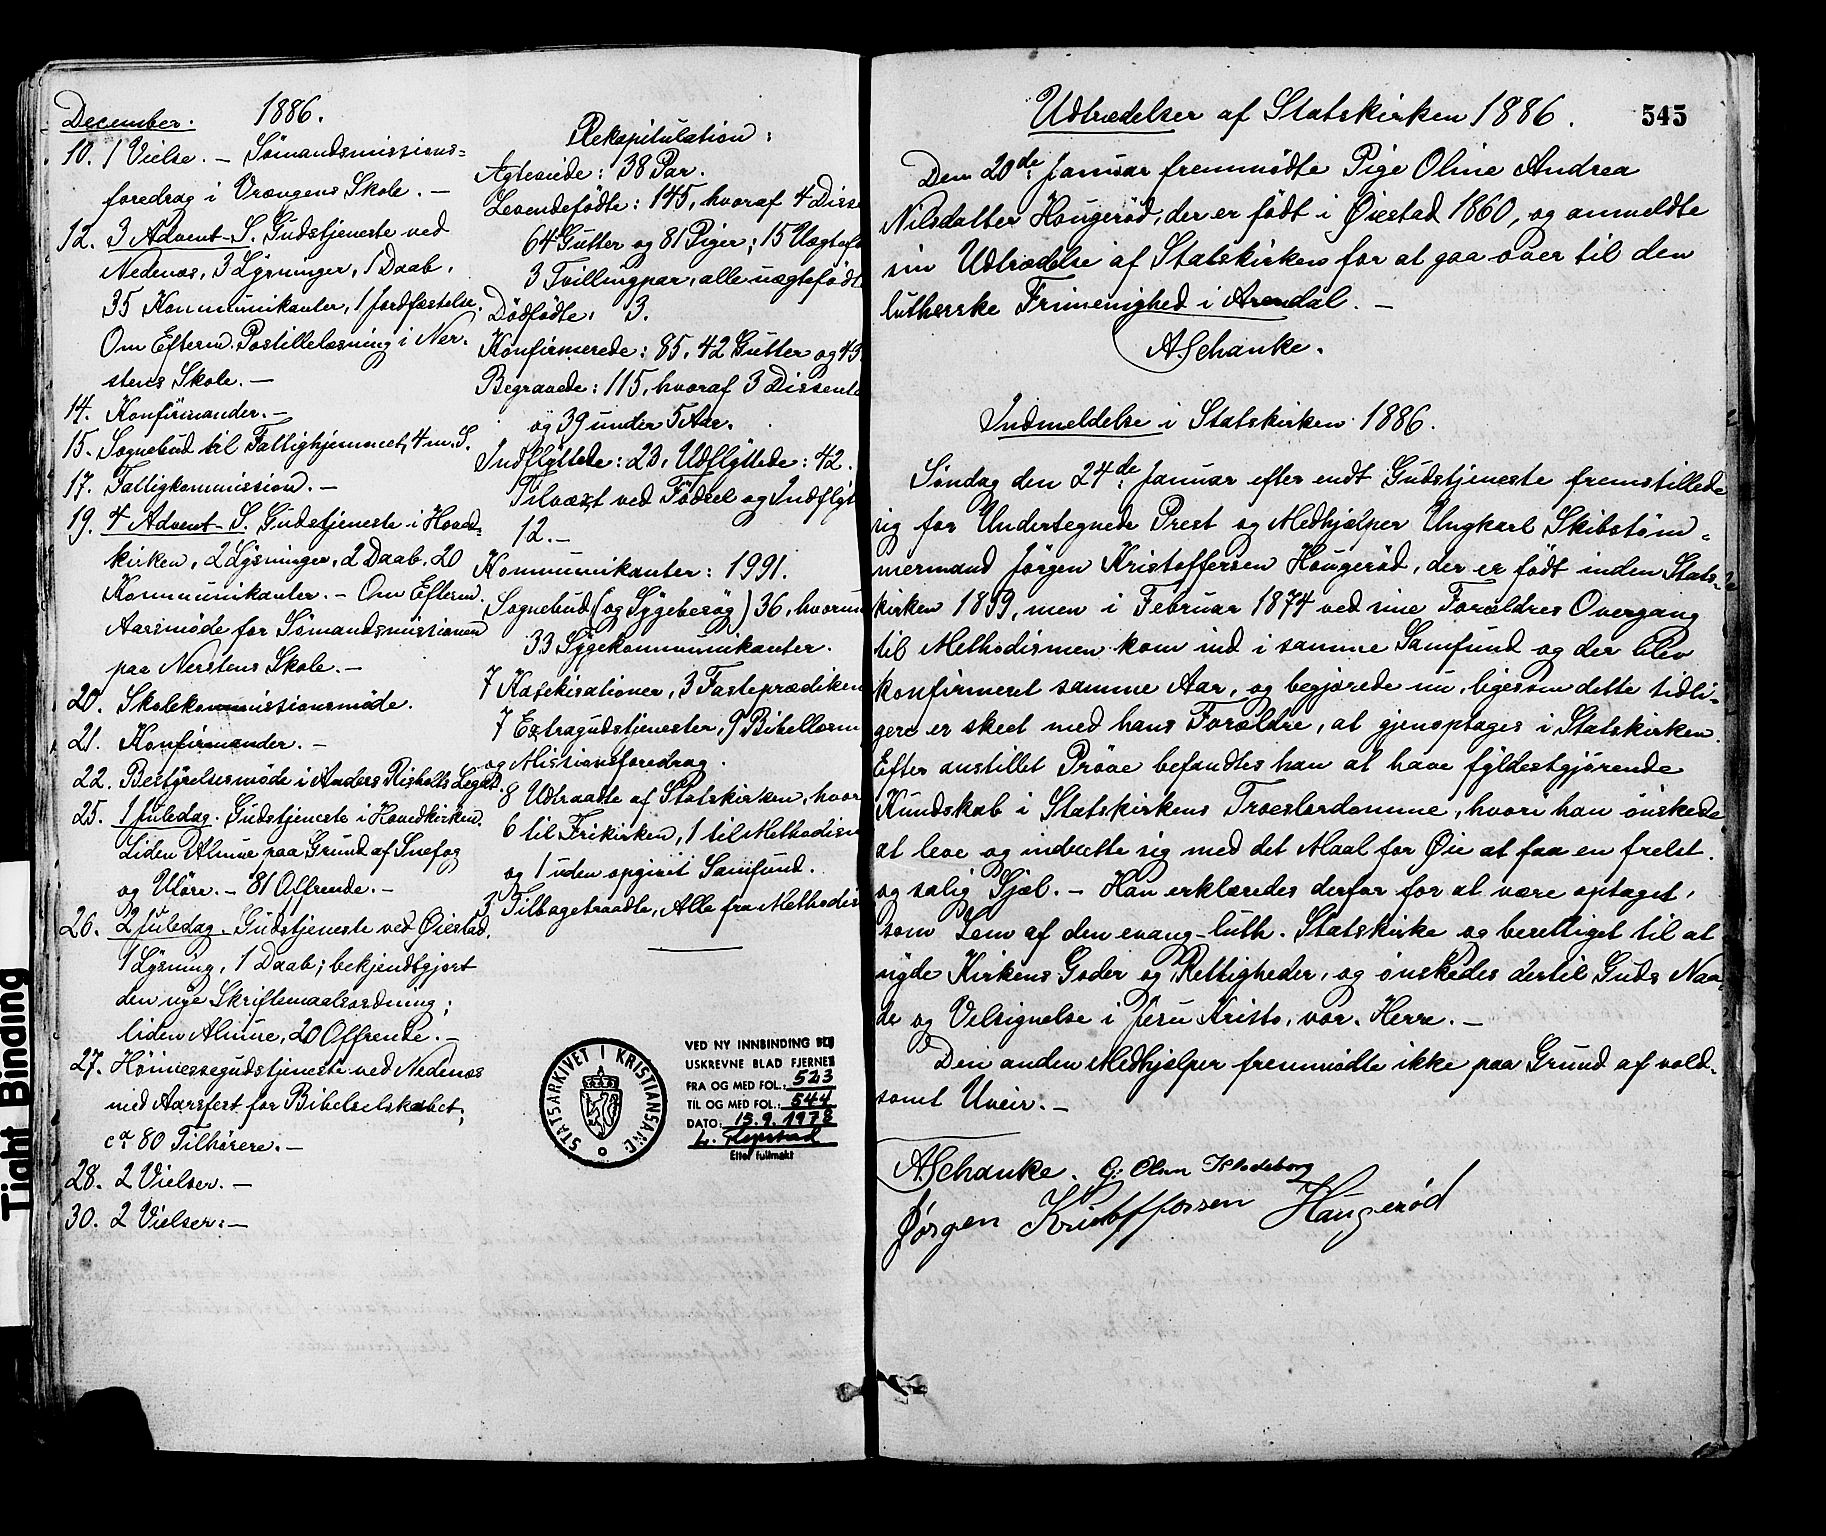 December. 1886.
10. 1 Vielse. – Sømandsmissions-
foredrag i Vrængens Skole. –
12. 3 Advent-S. Gudstjeneste ved
Nedenæs, 3 Lysninger, 1 Daab,
35 Kommunikanter, 1 Jordfæstelse.
Om Efterm. Postillelæsning i Ner-
stens Skole. –
14. Konfirmander. –
15. Sognebud til Fattighjemmet, 4 m. S.
17. Fattigkommission. –
19. 4 Advent-S. Gudstjeneste i Hoved-
kirken, 2 Lysninger, 2 Daab, 20
Kommunikanter. – Om Efterm.
Aarsmøde for Sømandsmissionen
paa Nerstens Skole. –
20. Skolekommissionsmøde.
21. Konfirmander. –
22. Bestyrelsesmøde i Anders Risholts Legat.
25. 1 Juledag. Gudstjeneste i Hovedkirken.
Liden Almue paa Grund af Snefog
og Uføre. – 81 Offrende. –
26. 2 Juledag. Gudstjeneste ved Øiestad.
1 Lysning, 1 Daab; bekjendtgjort
den nye Skriftemaalsordning;
liden Almue, 20 Offrende. –
27. Høimessegudstjeneste ved Nedenæs
med Aarsfest for Bibelselskabet;
ca 80 Tilhørere. –
28. 2 Vielser. –
30. 2 Vielser. –
Rekapitulation:
Ægteviede: 38 Par.
Levendefødte: 145, hvoraf 4 Disse
64 Gutter og 81 Piger; 15 Uægtefø
3 Tvillingpar, alle uægtefødt
Dødfødte: 3.
Konfirmerede: 85, 42 Gutter og 43
Begravede: 115, hvoraf 3 Dissente
og 39 under 5 Aar.
Indflyttede: 23, Udflyttede: 42.
Tilvæxt ved Fødsel og Indflyt
12. –
Kommunikanter: 1991.
Sognebud (og Sygebesøg) 36, hvorun
33 Sygekommunikanter.
7 Katekisationer, 3 Fasteprædiken
7 Extragudstjenester, 9 Bibellæsn
og Missionsforedrag.
8 Udtraadte af Statskirken, hvor
6 til Frikirken, 1 til Methodism
og 1 uden opgivet Samfund.
3 Tilbagetraadte, Alle fra Methodis
STATSARKIVET I KRISTIANSAND
VED NY INNBINDING BLE
USKREVNE BLAD FJERNET
FRA OG MED FOL.: 523
TIL OG MED FOL.: 544
DATO: 13.9.1978
Etter fullmakt
Tight Binding
Udtrædelser af Statskirken 1886. 545
Den 20de Januar fremmødte Pige Oline Andrea
Nilsdatter Hougerød, der er født i Øiestad 1860, og anmeldte
sin Udtrædelse af Statskirken for at gaa over til den
lutherske Frimenighed i Arendal. –
A Schanke.
Indmeldelse i Statskirken 1886.
Søndag den 24de Januar efter endt Gudstjeneste fremstillede
sig for Undertegnede Prest og Medhjælper Ungkarl Skibstøm-
mermand Jørgen Kristoffersen Hougerød, der er født inden Stats-
kirken 1859, men i Februar 1874 ved sine Forældres Overgang
til Methodismen kom ind i samme Samfund og der blev
konfirmeret samme Aar, og begjærede nu, ligesom dette tidli-
gere er skeet med hans Forældre, at gjenoptages i Statskirken.
Efter anstillet Prøve befandtes han at have fyldestgjørende
Kundskab i Statskirkens Troeslærdomme, hvori han ønskede
at leve og indrette sig med det Maal for Øie at faa en frelst
og salig Sjæl. – Han erklæredes derfor for at være optaget
som Lem af den evang-luth. Statskirke og berettiget til at
nyde Kirkens Goder og Rettigheder, og ønskedes dertil Guds Naa-
de og Velsignelse i Jesu Kristo, vor Herre. –
Den anden Medhjælper fremmødte ikke paa Grund af vold-
somt Uveir. –
A Schanke. G. Olsen Klodeborg
Jørgen Kristoffersen Haugerød